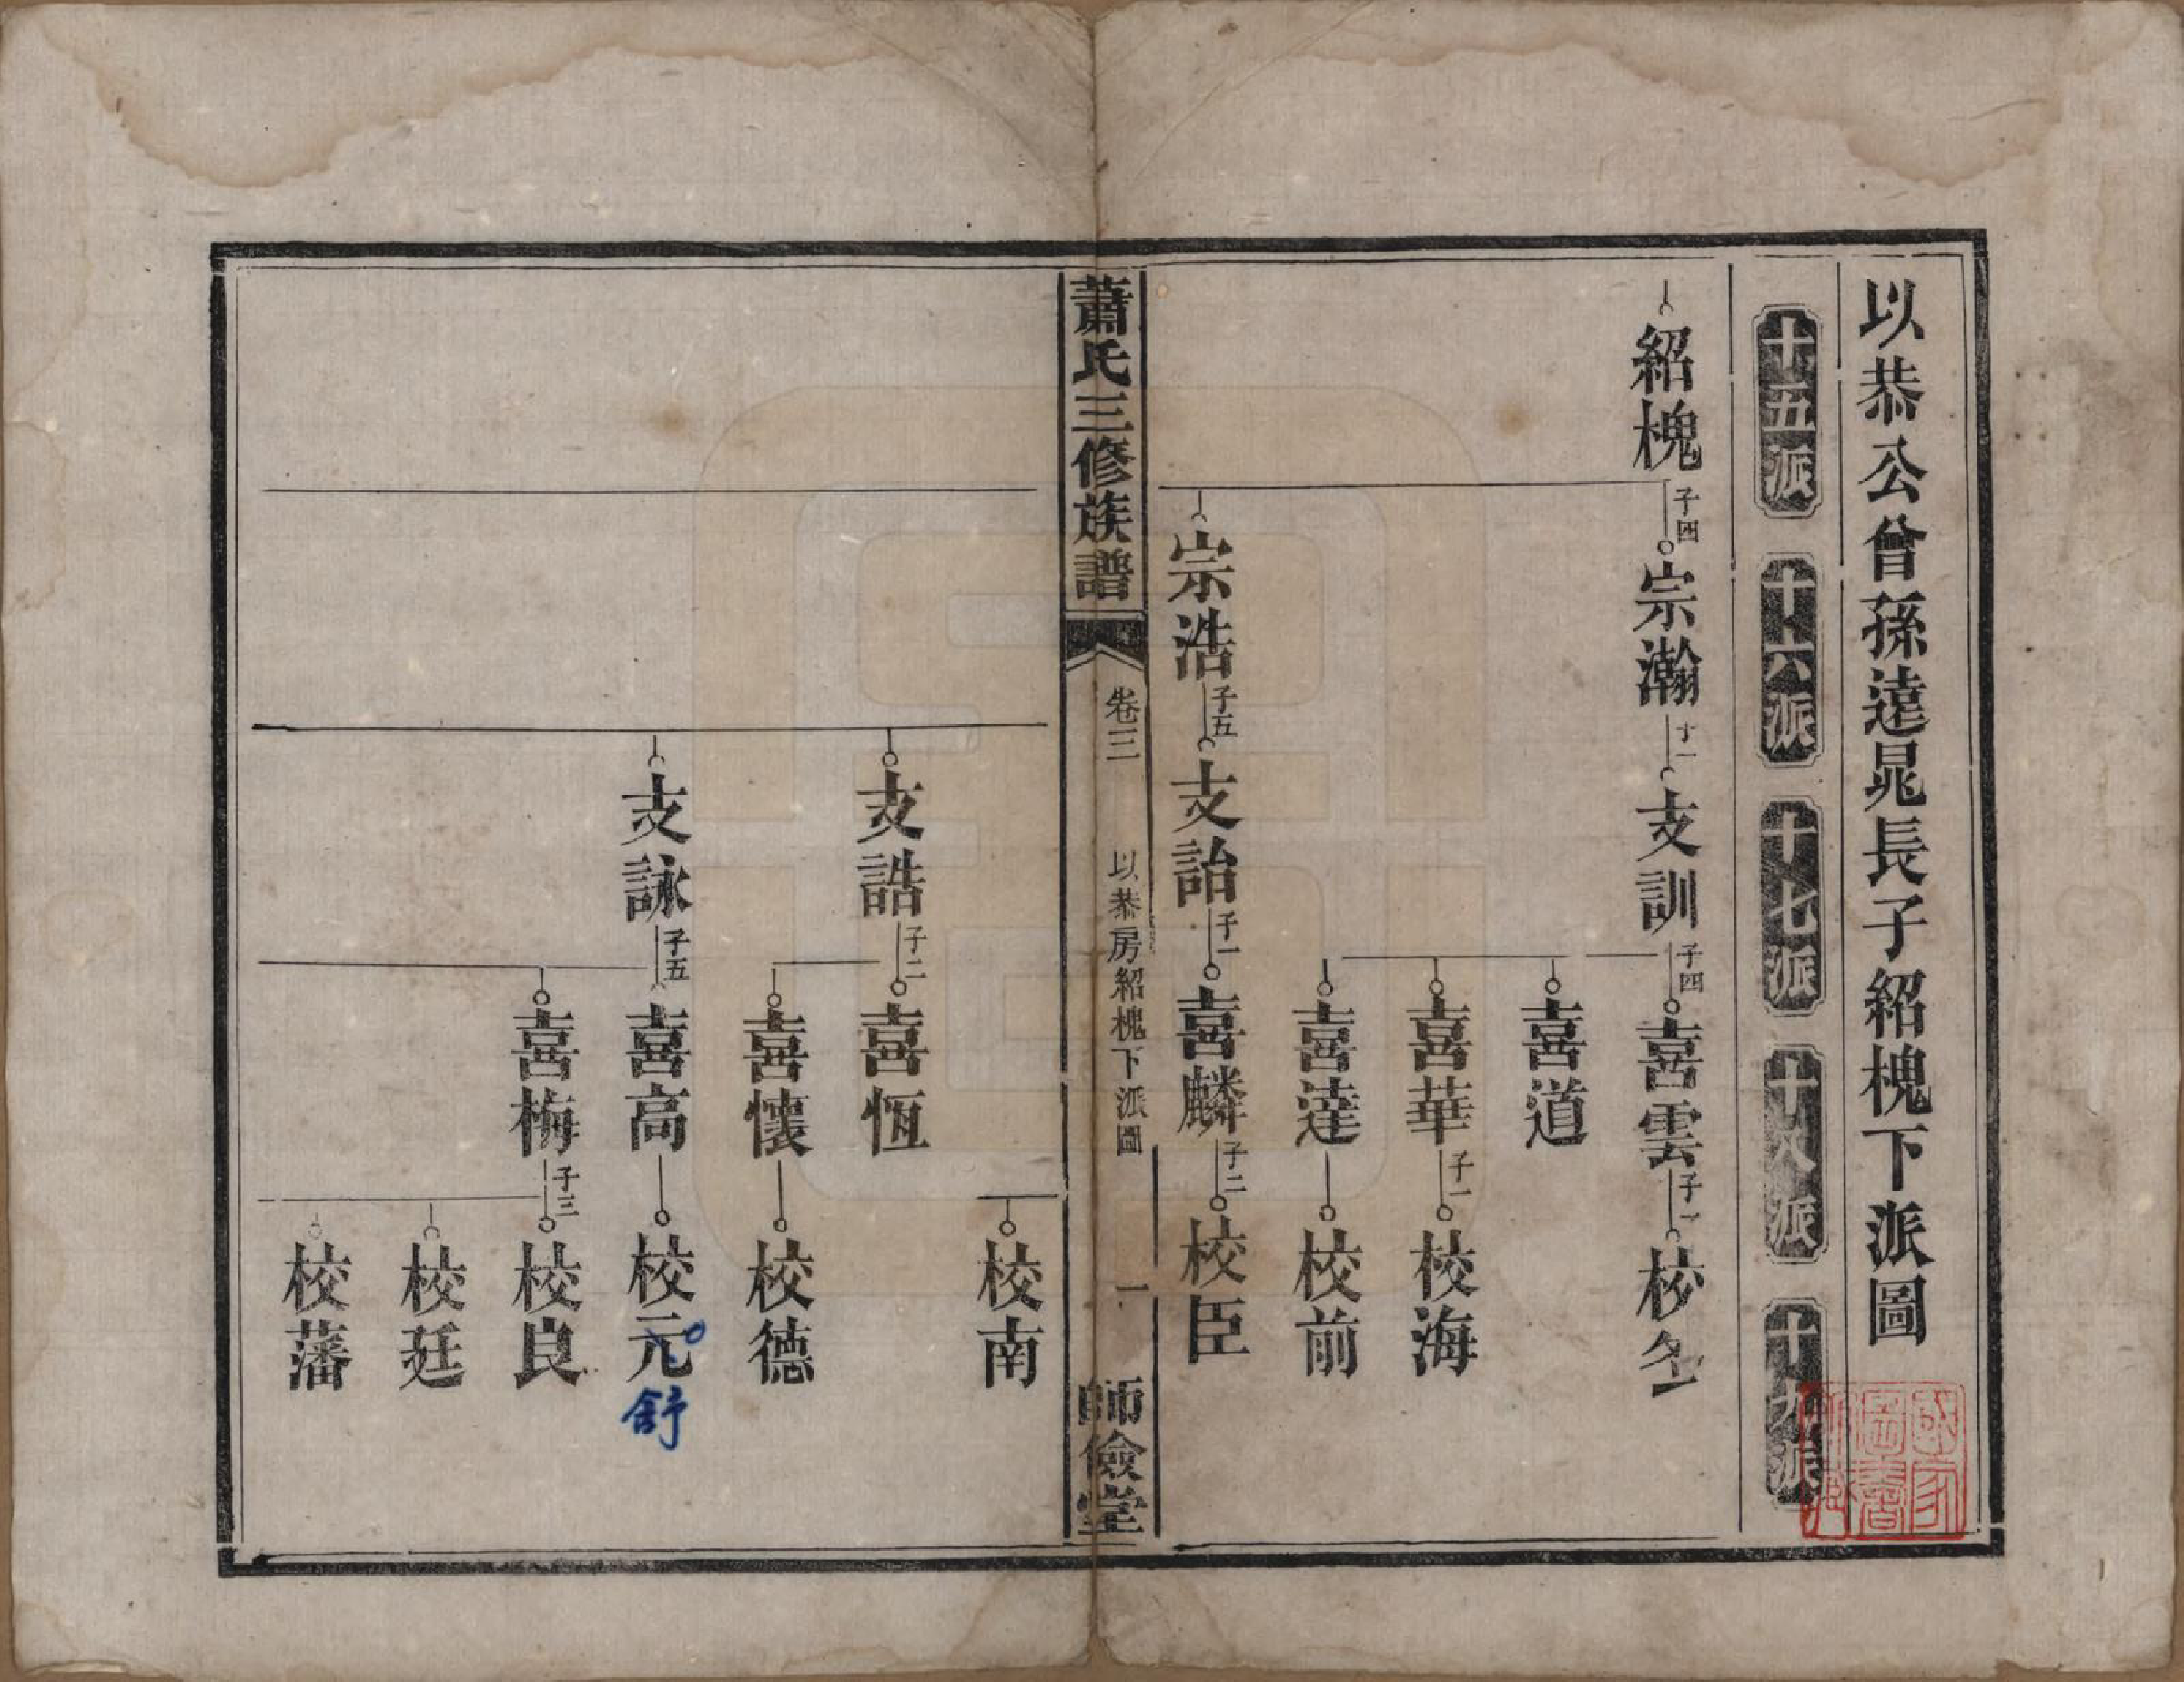 以恭公曾孫遠晁長子紹槐下派圖
十五派
十六派
十七派
十八派
十九派
紹槐 子四
宗瀚 子一
支訓 子四
喜雲 子一
校
喜道
喜華 子一
校海
喜達
校前
宗浩 子五
支詒 子一
喜麟 子二
校臣
蕭氏三修族譜
卷三
以恭房紹槐下派圖
一
師儉堂
校南
支誥 子二
喜恆
喜懷
校德
支詠 子五
喜高
校元
舒
喜梅 子三
校良
校廷
校藩